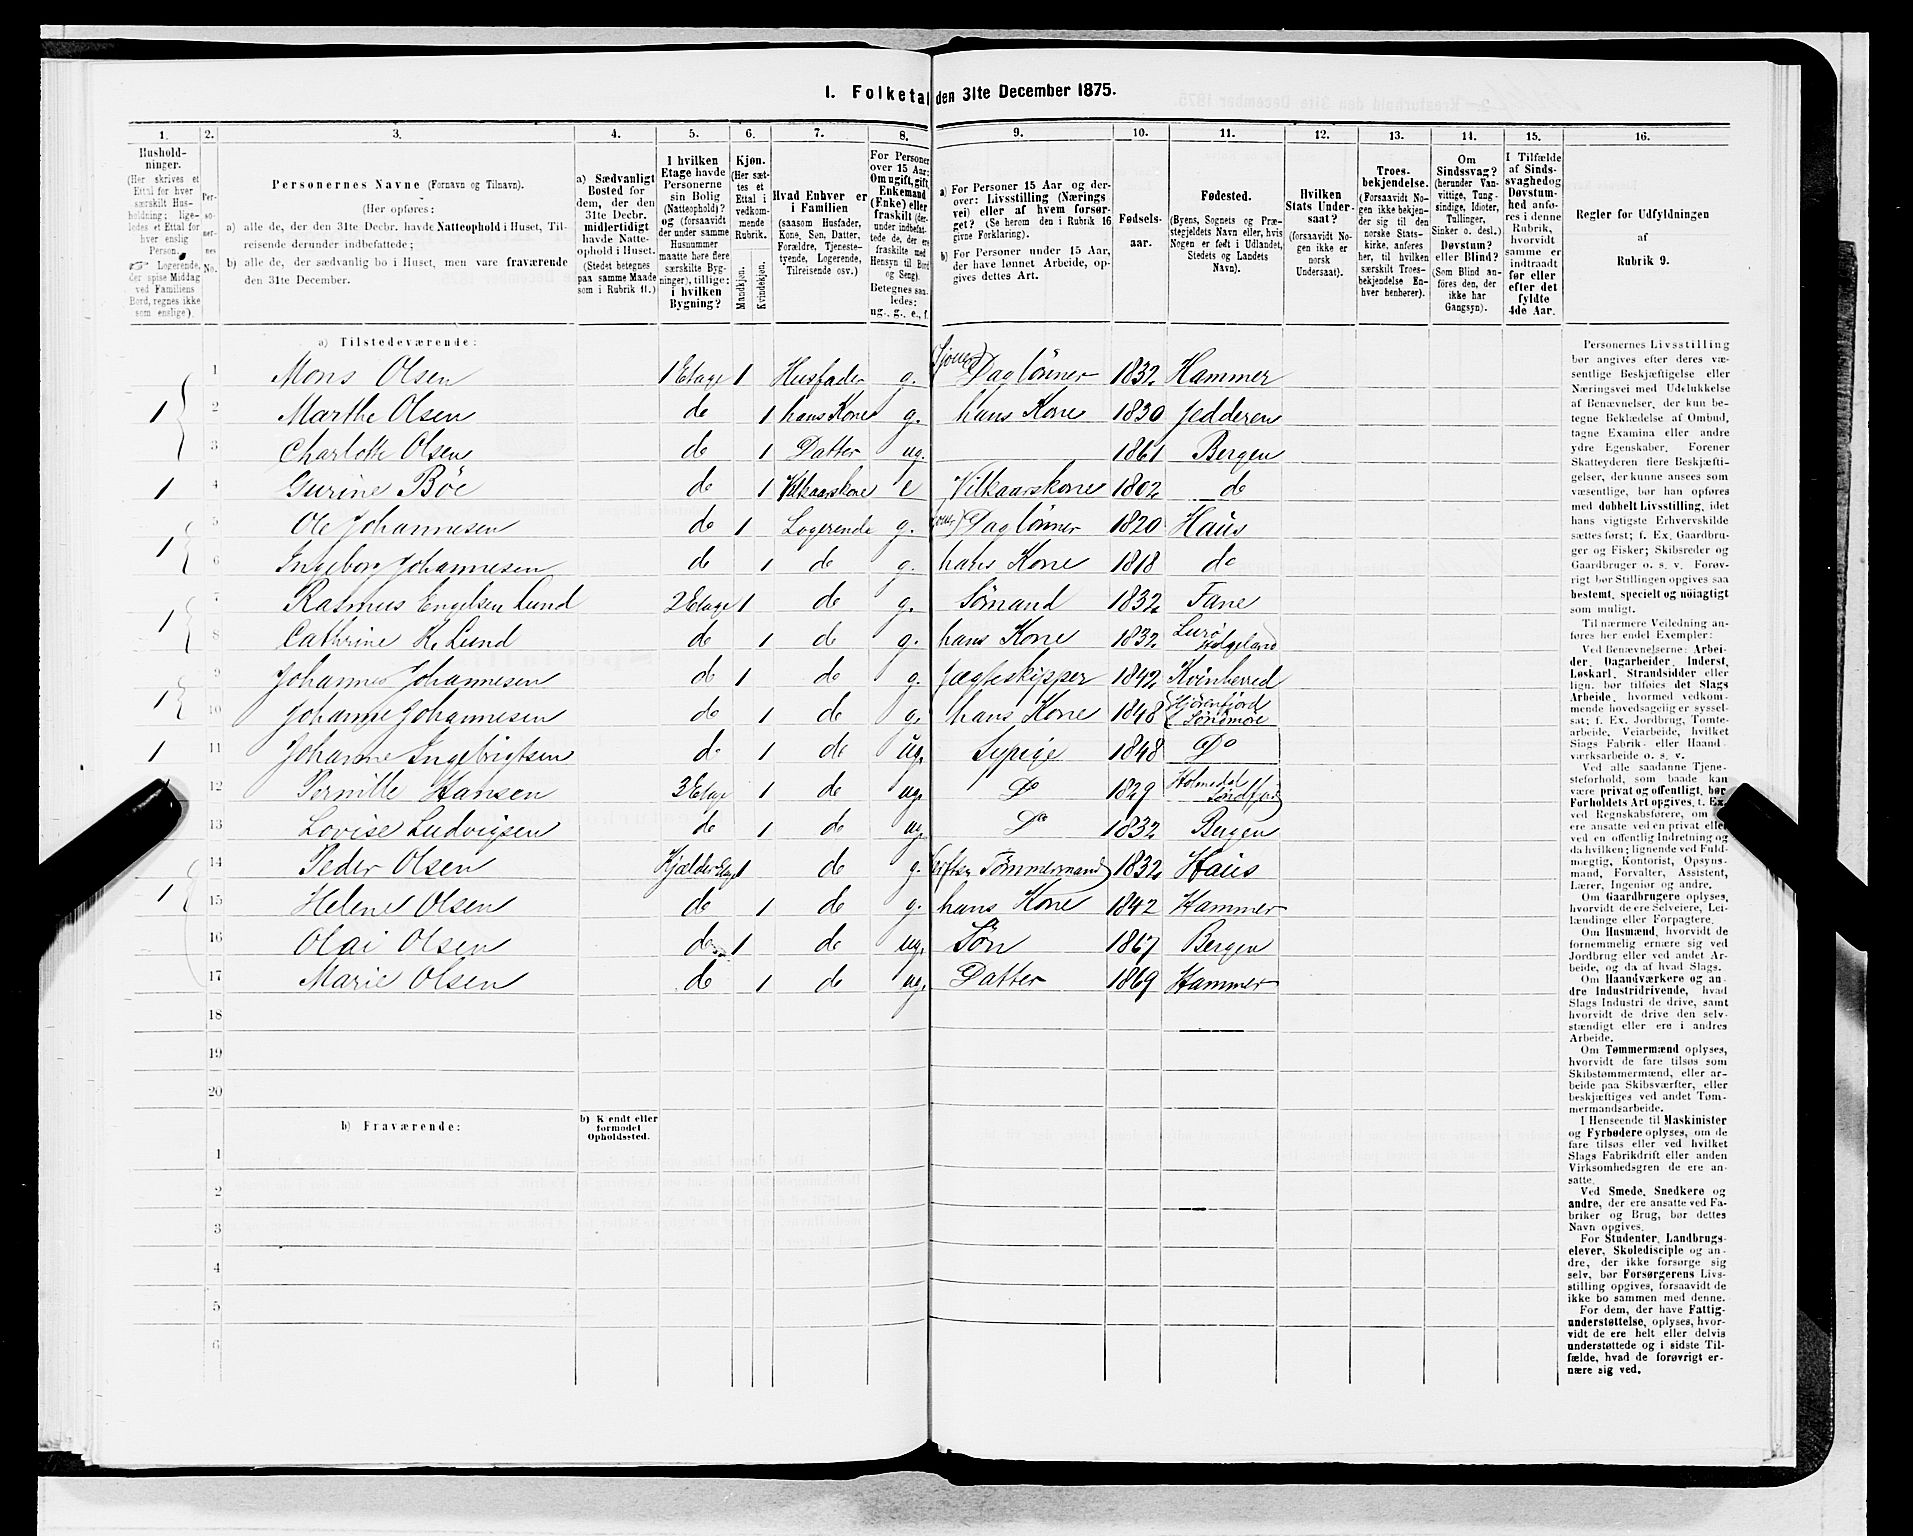 1. Folketal den 31te December 1875.
1. 2. 3. 4. 5. 6. 7. 8. 9. 10. 11. 12. 13. 14. 15. 16.
Hushold-
ninger.
(Her skrives et
Ettal for hver
særskilt Hus-
holdning; lige-
ledes et Ettal for
hver enslig
Person.
Logerende,
der spise Middag
ved Familiens
Bord, regnes ikke
som enslige).
Per-
so-
ner-
nes
No.
Personernes Navne (Fornavn og Tilnavn).
(Her opføres:
a) alle de, der den 31te Decbr. havde Natteophold i Huset, Til-
reisende derunder indbefattede;
b) alle de, der sædvanlig bo i Huset, men vare fraværende
den 31te December.
a) Sædvanligt
Bosted for
dem, der den
31te Decbr.
midlertidigt
havde Natte-
ophold i Huset.
(Stedet betegnes
paa samme Maade
som i Rubrik 11.)
I hvilken
Etage havde
Personerne
sin Bolig
(Natteophold)?
og (forsaavidt
der under samme
Husnummer
maatte høre flere
særskilte Byg-
ninger), tillige:
i hvilken
Bygning?
Kjøn.
(Her sæt-
tes et
Ettal i
vedkom-
mende
Rubrik.
Mandkjøn.
Kvindekjøn.
Hvad Enhver er
i Familien
(saasom Husfader,
Kone, Søn, Datter,
Forældre, Tjeneste-
tyende, Logerende,
Tilreisende osv.)
For Personer
over 15 Aar:
Om ugift, gift,
Enkemand
(Enke) eller
fraskilt (der-
under indbefat-
tede de, der ere
fraskilte med
Hensyn til Bord
og Seng).
Betegnes saa-
ledes:
ug., g., e., f.
a) For Personer 15 Aar og der-
over: Livsstilling (Nærings
vei) eller af hvem forsør-
get? (Se herom den i Rubrik 16
givne Forklaring).
b) For Personer under 15 Aar,
der have lønnet Arbeide, op-
gives dettes Art.
Fødsels-
aar.
Fødested.
(Byens, Sognets og Præ-
stegjeldets Navn eller, hvis
Nogen er født i Udlandet,
Stedets og Landets
Navn).
Hvilken
Stats Under-
saat?
(forsaavidt No-
gen ikke er
norsk
Undersaat).
Troes-
bekjendelse.
(Forsaavidt No-
gen ikke bekjen-
der sig til den
norske Stats-
kirke, anføres
her, til hvilken
særskilt Troes-
bekjendelse En-
hver henhører).
Om
Sindssvag?
(herunder Van-
vittige, Tung-
sindige, Idioter,
Tullinger,
Sinker o. desl.)
Døvstum?
eller Blind?
(Som Blind an-
føres den, der
ikke har
Gangsyn).
I Tilfælde
af Sinds-
svaghed og
Døvstum-
hed anfø-
res i denne
Rubrik,
hvorvidt
samme er
indtraadt
før eller
efter det
fyldte
4de Aar.
Regler for Udfyldningen
af
Rubrik 9.
a) Tilstedeværende:
1 Mons Olsen 1 Etage 1 Husfader g. Daglønner 1832 Hammer
1 2 Marthe Olsen do 1 hans Kone g. hans Kone 1830 Jedderen
3 Charlotte Olsen do 1 Datter ug. 1861 Bergen
1 4 Gurine Böe do 1 Vilkaarskone e Vilkaarskone 1802 do
1 5 Ole Johannesen do 1 Logerende g. Daglønner 1820 Haus
6 Ingeborg Johannesen do 1 do g. hans Kone 1818 do
1 7 Rasmus Engelsen Lund 2 Etage 1 do g. Sømand 1832 Fane
8 Cathrine K. Lund do 1 do g. hans Kone 1832 Lurö Helgeland
9 Johannes Johannesen do 1 do g. Jægteskipper 1842 Kvinherred
1 10 Johanne Johannesen do 1 do g. hans Kone 1848 Hjörenfjord Söndmöre
1 11 Johanne Ingebrigtsen do 1 do ug. Sypige 1848 Do
12 Pernille Hansen 3 Etage 1 do ug. Do 1829 Holmedal Söndfjord
13 Lovise Ludvigsen do 1 do ug. Do 1832 Bergen
14 Peder Olsen Kjælder Etag 1 do g. Tømmermand 1832 Haus
1 15 Helene Olsen do 1 do g. hans Kone 1842 Hammer
16 Olai Olsen do 1 do ug. Søn 1867 Bergen
17 Marie Olsen do 1 do ug. Datter 1869 Hammer
18
19
20
b) Fraværende:
b) Kjendt eller
formodet
Opholdssted.
1
2
3
4
5
6
Personernes Livsstilling
bør angives efter deres væ-
sentlige Beskjæftigelse eller
Næringsvei med Udelukkelse
af Benævnelser, der kun be-
tegne Beklædelse af Ombud,
tagne Examina eller andre
ydre Egenskaber. Forener
Skatteyderen flere Beskjæfti-
gelser, der kunne ansees som
væsentlige, bør han opføres
med dobbelt Livsstilling, idet
hans vigtigste Erhvervskilde
sættes først; f. Ex. Gaardbru-
ger og Fisker; Skibsreder og
Gaardbruger o. s. v. Forøv-
rigt bør Stillingen opgives saa
bestemt, specielt og nöiagtigt
som muligt.
Til nærmere Veiledning an-
føres her endel Exempler:
Ved Benævnelserne: Arbei-
der, Dagarbeider, Inderst,
Løskarl, Strandsidder eller
lign. bør tilføies det Slags
Arbeide, hvormed vedkom-
mende hovedsagelig er syssel-
sat; f. Ex. Jordbrug, Tomte-
arbeide, Veiarbeide, hvilket
Slags Fabrik- eller Haand-
værksarbeide o. s. v.
Ved alle saadanne Tjene-
steforhold, som baade kan
være privat og offentligt, bør
Forholdets Art opgives, t. Ex.
ved Regnskabsførere, om
ere ansatte ved en privat eller
ved en offentlig Indretning og
da hvilken; lignende ved Fuld-
mægtig, Kontorist, Opsyns-
mand, Forvalter, Assistent,
Lærer, Ingeniør og andre.
Om Gaardbrugere oplyses,
hvorvidt de ere Selveiere, Lei-
lændinge eller Forpagtere.
Om Husmænd, hvorvidt de
fornemmelig ernære sig ved
Jordbrug eller ved andet Ar-
beide, og da af hvad Slags.
Om Haandværkere og an-
dre Industridrivende, hvad
Slags Industri de drive, samt
hvorvidt de drive den selv-
stændigt eller ere i andres
Arbeide.
Om Tømmermænd oplyses,
hvorvidt de fare tilsøs som
Skibstømmermænd, eller ar-
beide paa Skibsværfter, eller
beskjæftiges ved andet Tøm-
mermandsarbeide.
I Henseende til Maskinister
og Fyrbødere oplyses, om de
fare tilsøs eller ved hvilket
Slags Fabrikdrift eller anden
Virksomhedsgren de ere an-
satte.
Ved Smede, Snedkere og
andre, der ere ansatte ved Fa-
briker og Brug, bør dettes
Navn opgives.
For Studenter, Landbrugs-
elever, Skoledisciple og an-
dre, der ikke forsørge sig
selv, bør Forsørgerens Livs-
stilling opgives, forsaavidt de
ikke bo sammen med denne.
For dem, der have Fattig-
understøttelse, oplyses, hvor-
vidt de ere helt eller delvis
understøttede og i sidste Til-
fælde, hvad de forøvrigt er-
nære sig ved.